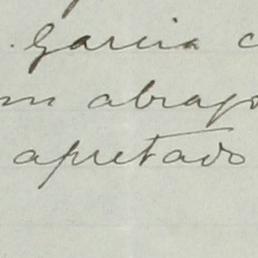 . Garcia c
m abrazo
apretado